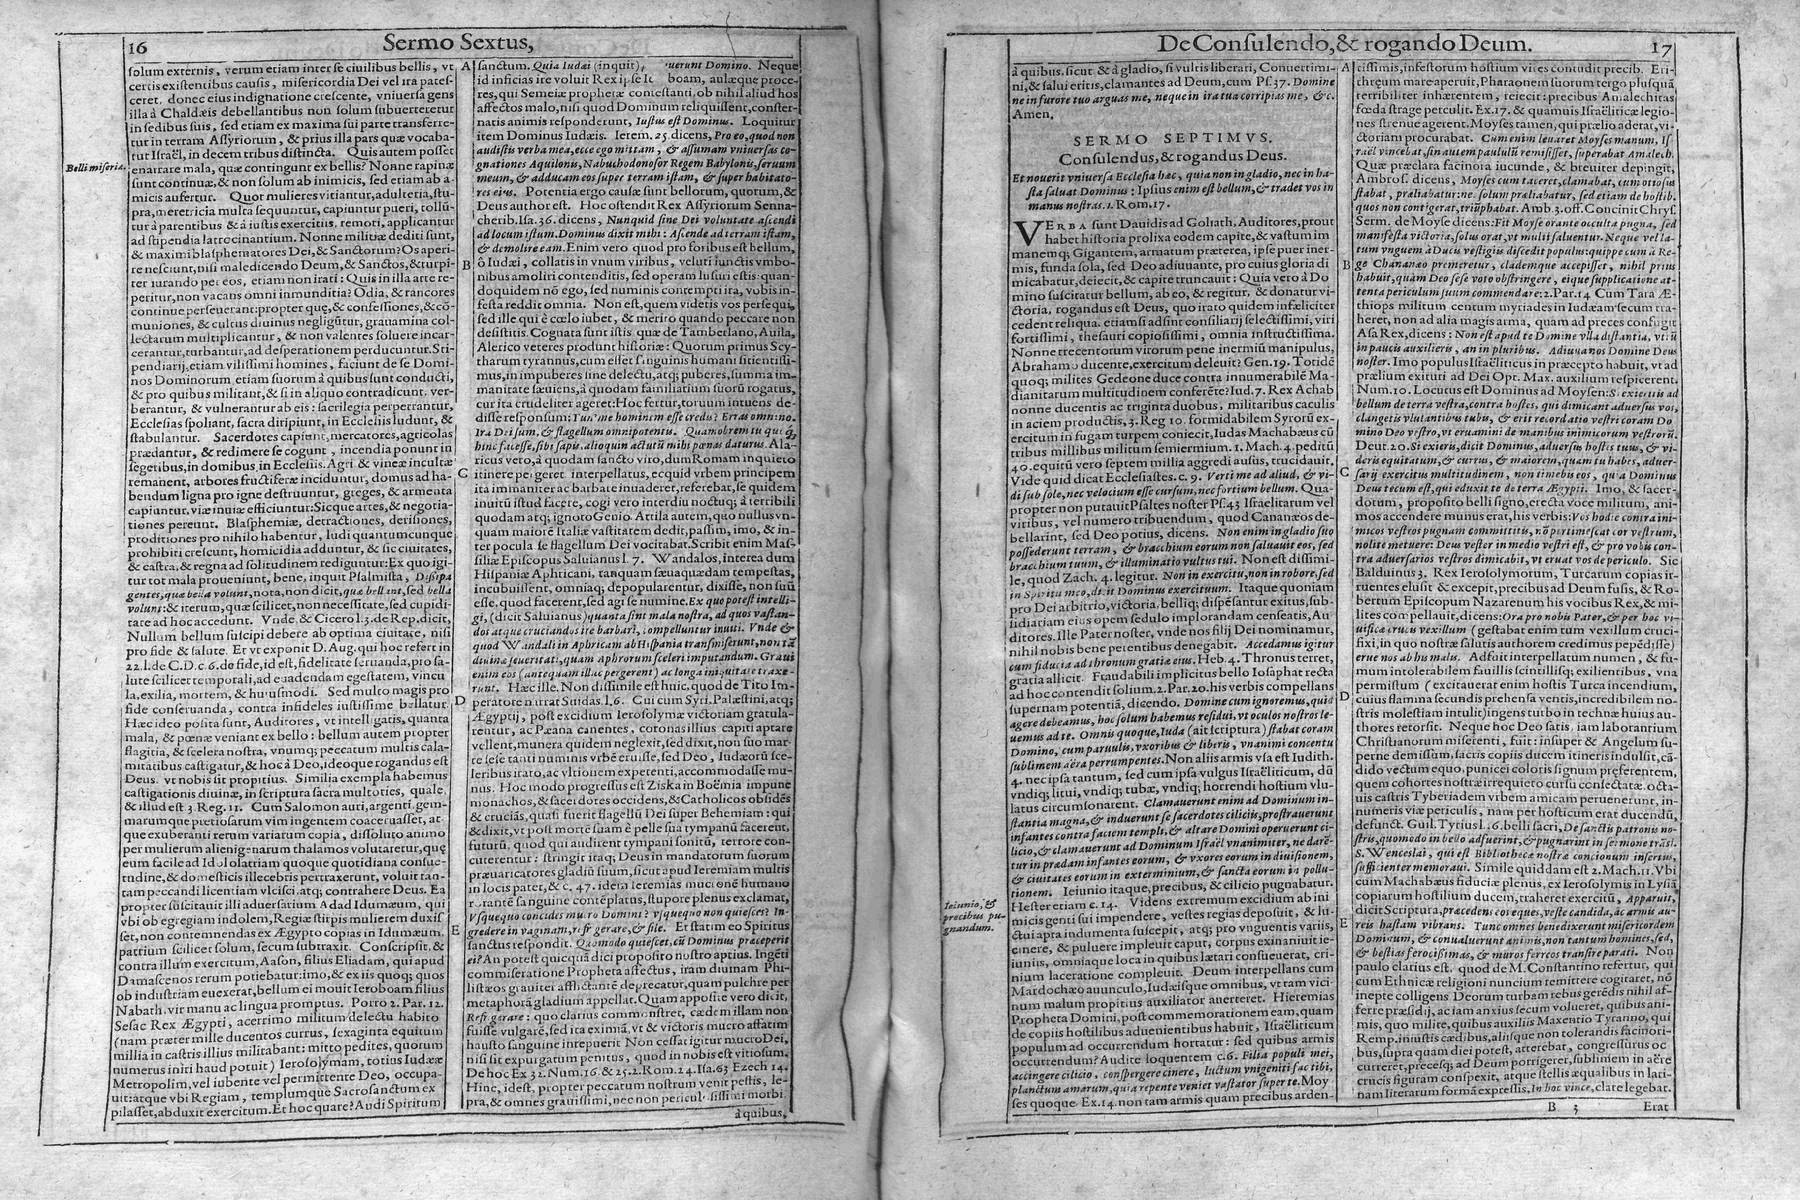 16
Sermo Sextus,
solum externis, verum etiam inter se ciuilibus bellis, vt
certis existentibus causis, misericordia Dei vel ira pates-
ceret. donec eius indignatione crescente, vniuersa gens
illa à Chaldæis debellantibus non solum subuerteretur
in sedibus suis, sed etiam ex maxima sui parte transferre-
tur in terram Assyriorum, & prius illa pars quæ vocaba-
tur Israël, in decem tribus distincta. Quis autem posset
Belli miseriæ.
enarrare mala, quæ contingunt ex bellis? Nonne rapinæ
sunt continuæ, & non solum ab inimicis, sed etiam ab a-
micis aufertur. Quot mulieres vitiantur, adulteria, stu-
pra, meretricia multa sequuntur, capiuntur pueri, tollū-
tur à parentibus & à iustis exercitiis, remoti, applicantur
ad stipendia latrocinantium. Nonne militiæ dediti sunt,
& maximi blasphematores Dei, & Sanctorum? Os aperi-
re nesciunt, nisi maledicendo Deum, & Sanctos, & turpi-
ter iurando per eos, etiam non irati: Quis in illa arte re-
peritur, non vacans omni inmunditia? Odia, & rancores
continue perseuerant: propter quę, & confessiones, & cō-
muniones, & cultus diuinus negligūtur, grauamina col-
lectarum multiplicantur, & non valentes soluere incar-
cerantur, turbantur, ad desperationem perducuntur. Sti-
pendiarij, etiam vilissimi homines, faciunt de se Domi-
nos Dominorum, etiam suorum à quibus sunt conducti,
& pro quibus militant, & si in aliquo contradicunt. ver-
berantur, & vulnerantur ab eis: sacrilegia perpetrantur,
Ecclesias spoliant, sacra diripiunt, in Ecclesiis ludunt, &
stabulantur. Sacerdotes capiunt, mercatores, agricolas
prædantur, & redimere se cogunt, incendia ponunt in
segetibus, in domibus, in Ecclesiis. Agri & vineæ incultæ
remanent, arbores fructiferæ inciduntur, domus ad ha-
bendum ligna pro igne destruuntur, greges, & armenta
capiuntur. viæ inuiæ efficiuntur: Sicque artes, & negotia-
tiones pereunt. Blasphemiæ, detractiones, derisiones,
proditiones pro nihilo habentur, ludi quantumcunque
prohibiti crescunt, homicidia adduntur, & sic ciuitates,
& castra, & regna ad solitudinem rediguntur: Ex quo igi-
tur tot mala proueniunt, bene, inquit Psalmista, Dissipa
gentes, quæ bella volunt, nota, non dicit, quæ bellant, sed bella
volunt: & iterum, quæ scilicet, non necessitate, sed cupidi-
tate ad hoc accedunt. Vnde, & Cicero l. 3. de Rep. dicit,
Nullum bellum suscipi debere ab optima ciuitate, nisi
pro fide & salute. Et vt exponit D. Aug. qui hoc refert in
22. l. de C. D. c. 6. de fide, id est, fidelitate seruanda, pro sa-
lute scilicet temporali, ad euadendam egestatem, vincu
la, exilia, mortem, & huiusmodi. Sed multo magis pro
fide conseruanda, contra infideles iustissime bellatur.
Hæc ideo posita sunt, Auditores, vt intelligatis, quanta
mala, & pœnæ veniant ex bello: bellum autem propter
flagitia, & scelera nostra, vnumq; peccatum multis cala-
mitatibus castigatur, & hoc à Deo, ideoque rogandus est
Deus. vt nobis sit propitius. Similia exempla habemus
castigationis diuinæ, in scriptura sacra multoties, quale
& illud est 3. Reg. 11. Cum Salomon auri, argenti gem-
marumque pretiosarum vim ingentem coaceruasset, at-
que exuberanti rerum variarum copia, dissoluto animo
per mulierum alienigenarum thalamos volutaretur, quę
eum facile ad Idololatriam quoque quotidiana consue-
tudine, & domesticis illecebris pertraxerunt, voluit tan-
tam peccandi licentiam vlcisci. atq; contrahere Deus. Ea
propter suscitauit illi aduersarium Adad Idumæum, qui
vbi ob egregiam indolem, Regiæ stirpis mulierem duxis
set, non contemnendas ex Ægypto copias in Idumæum.
patrium scilicet solum, secum subtraxit. Conscripsit, &
contra illum exercitum, Aason, filius Eliadam, qui apud
Damascenos rerum potiebatur: imo, & ex iis quoq; quos
ob industriam euexerat, bellum ei mouit Ieroboam filius
Nabath, vir manu ac lingua promptus. Porro 2. Par. 12.
Sesac Rex Ægypti, acerrimo militum delectu habito
(nam præter mille ducentos currus, sexaginta equitum
millia in castris illius militabant: mitto pedites, quorum
numerus iniri haud potuit) Ierosolymam, totius Iudææ
Metropolim, vel iubente vel permittente Deo, occupa-
uit: atque vbi Regiam, templumque Sacrosanctum ex
pilasset, abduxit exercitum. Et hoc quare? Audi Spiritum
A
B
C
D
E
sanctum. Quia Iudæi (inquit),
uerunt Domino. Neque
id inficias ite voluit Rex ipse
boam, aulæque proce-
res, qui Semeiæ prophetæ contestanti, ob nihil aliud hos
affectos malo, nisi quod Dominum reliquissent, conster-
natis animis responderunt, Iustus est Dominus. Loquitur
item Dominus Iudæis. Ierem. 25. dicens, Pro eo, quod non
audistis verba mea, ecce ego mittam, & assumam vniuersas co-
gnationes Aquilonis, Nabuchodonosor Regem Babylonis, seruum
meum, & adducam eos super terram istam, & super habitato-
res eius. Potentia ergo causæ sunt bellorum, quotum, &
Deus author est. Hoc ostendit Rex Assyriorum Senna-
cherib. Isa. 36. dicens, Nunquid sine Dei voluntate ascendi
ad locum istum. Dominus dixit mihi: Ascende ad terram istam,
& demolire eam. Enim vero quod pro foribus est bellum,
ô Iudæi, collatis in vnum viribus, veluti iunctis vmbo-
nibus amoliri contenditis, sed operam lusuri estis: quan-
doquidem nō ego, sed numinis contempti ira, vobis in-
festa reddit omnia. Non est, quem videris vos persequi,
sed ille qui è cœlo iubet, & merito quando peccare non
desistitis. Cognata sunt istis quæ de Tamberlano, Auila,
Alerico veteres produnt historiæ: Quorum primus Scy-
tharum tyrannus, cum esset sanguinis humani sitientissi-
mus, in impuberes sine delectu, atq; puberes, summa im-
manitate sæuiens, à quodam familiatium suorū rogatus,
cur ita crudeliter ageret: Hoc fertur, toruum intuens de-
disse responsum: Tun' me hominem esse credis? Erras omnino.
Ira Dei sum, & flagellum omnipotentis. Quamobrem tu qui q̃
hinc facesse, si bi sapis. alioquin actutū mihi pœnas daturus. Ala-
ricus vero, à quodam sancto viro, dum Romam inquieto
itinere pergeret interpellatus, ecquid vrbem principem
ita immaniter ac barbare inuaderet, referebat, se quidem
inuitū istud facere, cogi vero interdiu noctuq; à terribili
quodam atq; ignoto Genio. Attila autem, quo nullus vn-
quam maiorē Italiæ vastitatem dedit, passim, imo, & in-
ter pocula se flagellum Dei vocitabat. Scribit enim Mas-
siliæ Episcopus Saluianus l. 7. Wandalos, interea dum
Hispaniæ Aphricani, tanquam sæuaquædam tempestas,
incubuissent, omniaq; depopularentur, dixisse, non suū
esse. quod facerent, sed agi se numine. Ex quo potest intelli-
gi, (dicit Saluianus) quanta sint mala nostra, ad quos vastan-
dos atque cruciandos ire barbari, compelluntur inuiti. Vnde &
quod Wandali in Aphricam ab Hispania transmiserunt, non tā
diuinæ seueritati, quam Aphrorum sceleri imputandum. Graui
enim eos (antequam illac pergerent) ac longa iniquitate traxe-
runt. Hæc ille. Non dissimile est huic, quod de Tito Im-
peratore narrat Suidas l. 6. Cui cum Syri, Palæstini, atq;
Ægyptij, post excidium Ierosolymæ victoriam gratula-
rentur, ac Pæana canentes, coronas illius capiti aptare
vellent, munera quidem neglexit, sed dixit, non suo mar-
te sese tanti numinis vrbē eruisse, sed Deo, Iudæorū sce-
leribus irato, ac vltionem expetenti, accommodasse ma-
nus. Hoc modo progressus est Ziska in Boëmia impune
monachos, & sacerdotes occidens, & Catholicos obsidēs
& cruciās, quasi fuerit flagellū Dei super Behemiam: qui
& dixit, vt post mortē suam è pelle sua tympanū facerent,
futurū, quod qui audirent tympani sonitū, terrore con-
cuterentur: stringit itaq; Deus in mandatorum suorum
præuaricatores gladiū suum, sicut apud Ieremiam multis
in locis patet, & c. 47. idem Ieremias mucronē humano
rorantē sanguine contēplatus, stupore plenus exclamat,
Vsquequo concides mucro Domini? vsquequo non quiesces? In-
gredere in vaginam, refrigerare, & sile. Et statim eo Spiritus
sanctus respondit. Quomodo quiescet, cū Dominus præceperit
ei? An potest quicquā dici proposito nostro aptius. Ingēti
commiseratione Propheta affectus, iram diuinam Phi-
listæos grauiter afflictantē deprecatur, quam pulchre per
metaphorā gladium appellat. Quam apposite vero dicit,
Refrigerare: quo clarius commonstret, cædem illam non
fuisse vulgarē, sed ita eximiā, vt & victoris mucro affatim
hausto sanguine intepuerit. Non cessat igitur mucro Dei,
nisi sit expurgatum penitus, quod in nobis est vitiosum.
De hoc Ex 32. Num. 16. & 25. 2. Rom. 24. Isa. 63 Ezech 14.
Hinc, idest, propter peccatum nostrum venit pestis, le-
pra, & omnes grauissimi, nec non periculosissimi morbi
à quibus,
De Consulendo, & rogando Deum.
17
à quibus, sicut & à gladio, si vultis liberari, Conuertimi-
ni, & salui eritis, clamantes ad Deum, cum Ps. 37. Domine
ne in furore tuo arguas me, neque in ira tua corripias me, &c.
Amen.
SERMO SEPTIMVS.
Consulendus, & rogandus Deus.
Et nouerit vniuersa Ecclesia hæc, quia non in gladio, nec in ha-
sta saluat Dominus: Ipsius enim est bellum, & tradet vos in
manus nostras. 1. Rom. 17.
VERBA sunt Dauidis ad Goliath, Auditores, prout
habet historia prolixa eodem capite, & vastum im
manemq; Gigantem, armatum præterea, ipse puer iner-
mis, funda sola, sed Deo adiuuante, pro cuius gloria di
micabatur, deiecit, & capite truncauit: Quia vero à Do
mino suscitatur bellum, ab eo, & regitur, & donatur vi-
ctoria, rogandus est Deus, quo irato quidem infeliciter
cedent reliqua. etiamsi adsint consiliarij selectissimi, viri
fortissimi, thesauri copiosissimi, omnia instructissima.
Nonne trecentorum virorum pene inermiū manipulus,
Abrahamo ducente, exercitum deleuit? Gen. 19. Totidē
quoq; milites Gedeone duce contra innumerabilē Ma-
dianitarum multitudinem conferēte? Iud. 7. Rex Achab
nonne ducentis ac triginta duobus, militaribus caculis
in aciem productis, 3. Reg 10. formidabilem Syrorū ex-
ercitum in fugam turpem coniecit, Iudas Machabæus cū
tribus millibus militum semiermium. 1. Mach. 4. peditū
40. equitū vero septem millia aggredi ausus, trucidauit.
Vide quid dicat Ecclesiastes. c. 9. Verti me ad aliud, & vi-
di sub sole, nec velocium esse cursum, nec fortium bellum. Qua-
propter non putauit Psaltes noster Ps. 43 Israelitarum vel
viribus, vel numero tribuendum, quod Cananæos de-
bellarint, sed Deo potius, dicens. Non enim in gladio suo
possederunt terram, & bracchium eorum non saluauit eos, sed
bracchium tuum, & illuminatio vultus tui. Non est dissimi-
le, quod Zach. 4. legitur. Non in exercitu, non in robore, sed
in Spiritu meo, dicit Dominus exercituum. Itaque quoniam
pro Dei arbitrio, victoria, belliq; dispēsantur exitus, sub-
sidiatiam eius opem sedulo implorandam censeatis, Au-
ditores. Ille Pater noster, vnde nos filij Dei nominamur,
nihil nobis bene petentibus denegabit. Accedamus igitur
cum fiducia ad thronum gratiæ eius. Heb. 4. Thronus terret,
gratia allicit. Fraudabili implicitus bello Iosaphat recta
ad hoc contendit solium. 2. Par. 20. his verbis compellans
supernam potentiā, dicendo. Domine cum ignoremus, quid
agere debeamus, hoc solum habemus residui, vt oculos nostros le-
uemus ad te. Omnis quoque, Iuda (ait scriptura) stabat coram
Domino, cum paruulis, vxoribus & liberis, vnanimi concentu
sublimem aëra perrumpentes. Non aliis armis vsa est Iudith.
4. nec ipsa tantum, sed cum ipsa vulgus Israëliticum, dū
vndiq; litui, vndiq; tubæ, vndiq; horrendi hostium vlu-
latus circumsonarent. Clamauerunt enim ad Dominum in-
stantia magna, & induerunt se sacerdotes ciliciis, prostrauerunt
infantes contra faciem templi, & altare Domini operuerunt ci-
licio, & clamauerunt ad Dominum Israël vnanimiter, ne darē-
tur in prædam infantes eorum, & vxores eorum in diuisionem,
& ciuitates eorum in exterminium, & sancta eorum in pollu-
tionem. Ieiunio itaque, precibus, & cilicio pugnabatur.
Ieiunio, &
precibus pu-
gnandum.
Hester etiam c. 14. Videns extremum excidium ab ini
micis genti sui impendere, vestes regias deposuit, & lu-
ctui apta indumenta suscepit, atq; pro vnguentis variis,
cinere, & puluere impleuit caput, corpus exinaniuit ie-
iuniis, omniaque loca in quibus lætari consueuerat, cri-
nium laceratione compleuit. Deum interpellans cum
Mardochæo auunculo, Iudæisque omnibus, vt tam vici-
num malum propitius auxiliator auerteret. Hieremias
Propheta Domini, post commemorationem eam, quam
de copiis hostilibus aduenientibus habuit, Israëliticum
populum ad occurrendum hortatur: sed quibus armis
occurrendum? Audite loquentem c. 6. Filia populi mei,
accingere cilicio, conspergere cinere, luctum vnigeniti fac tibi,
planctum amarum, quia repente veniet vastator super te. Moy
ses quoque Ex. 14. non tam armis quam precibus arden-
A
B
C
D
E
tissimis, infestorum hostium vires contudit precib. Eri-
thręum mare aperuit, Pharaonem suorum tergo plusquā
terribiliter inhærentem, reiecit: precibus Amalechitas
fœda strage perculit. Ex. 17. & quamuis Israëliticæ legio-
nes strenue agerent. Moyses tamen, qui prælio aderat, vi-
ctoriam procurabat. Cum enim leuaret Moyses manum, Is
raël vincebat, sin autem paululū remisisset, superabat Amalech.
Quæ præclara facinoia iucunde, & breuiter depingit,
Ambros. dicens, Moyses cum taceret, clamabat, cum otiosus
stabat, præliabatur: ne solum præliabatur, sed etiam de hostib.
quos non contigerat, triūphabat. Amb. 3. off. Concinit Chrys.
Serm. de Moyse dicens: Fit Moyse orante occulta pugna, sed
manifesta victoria, solus orat, vt multi saluentur. Neque vel la-
tum vnguem à Ducis vestigiis discedit populus: quippe cum à Re-
ge Chananæo premeretur, clademque accepisset, nihil prius
habuit, quam Deo sese voto obstringere, eique supplicatione at-
tenta periculum suum commendare: 2. Par. 14 Cum Tara Æ-
thiops militum centum myriades in Iudæam secum tra-
heret, non ad alia magis arma, quam ad preces confugit
Asa Rex, dicens: Non est apud te Domine vlla distantia, vtrū
in paucis auxilieris, an in pluribus. Adiuua nos Domine Deus
noster. Imo populus Israëliticus in præcepto habuit, vt ad
prælium exituri ad Dei Opt. Max. auxilium respicerent.
Num. 10. Locutus est Dominus ad Moysen: Si exieritis ad
bellum de terra vestra, contra hostes, qui dimicant aduersus vos,
clangetis vlulantibus tubis, & erit recordatio vestri coram Do
mino Deo vestro, vt eruamini de manibus inimicorum vestrorū.
Deut. 20. Si exieris, dicit Dominus, aduersus hostes tuos, & vi-
deris equitatum, & currus, & maiorem, quam tu habes, aduer-
sarij exercitus multitudinem, non timebis eos, quia Dominus
Deus tecum est, qui eduxit te de terra Ægypti. Imo, & sacer-
dotum, proposito belli signo, erecta voce militum, ani-
mos accendere munus erat, his verbis: Vos hodie contra ini-
micos vestros pugnam committitis, nō pertimescat cor vestrum,
nolite metuere: Deus vester in medio vestri est, & pro vobis con-
tra aduersarios vestros dimicabit, vt eruat vos de periculo. Sic
Balduinus 3. Rex Ierosolymotum, Turcarum copias ir-
ruentes elusit & excepit, precibus ad Deum fusis, & Ro-
bertum Episcopum Nazarenum his vocibus Rex, & mi-
lites compellauit, dicens: Ora pro nobis Pater, & per hoc vi-
uificæ crucis vexillum (gestabat enim tum vexillum cruci-
fixi, in quo nostræ salutis authorem credimus pepēdisse)
erue nos ab his malis. Adfuit interpellatum numen, & fu-
mum intolerabilem fauillis scintillisq; exilientibus, vna
permistum (excitauerat enim hostis Turca incendium,
cuius flamma secundis prehensa ventis, incredibilem no-
stris molestiam intulit) ingens turbo in technæ huius au-
thores retorsit. Neque hoc Deo satis, iam laborantium
Christianorum miserenti, fuit: insuper & Angelum su-
perne demissum, sactis copiis ducem itineris indulsit, cā-
dido vectum equo, puniceicoloris signum pręferentem,
quem cohortes nostræ irrequieto cursu consectatæ. octa-
uis castris Tyberiadem vrbem amicam peruenerunt, in-
numeris viæ periculis, nam per hosticum erat ducendū,
defunct. Guil. Tyrius l. 16. belli sacri, De sanctis patronis no-
stris, quomodo in bello adfuerint, & pugnarint in sermone trāsl.
S. Wenceslai, qui est Bibliothecæ nostræ concionum insertus,
sufficienter memoraui. Simile quiddam est 2. Mach. 11. Vbi
cum Machabæus fiduciæ plenus, ex Ierosolymis in Lysiā
copiarum hostilium ducem, traheret exercitū, Apparuit,
dicit Scriptura, præcedens eos eques, veste candida, ac armis au-
reis hastam vibrans. Tunc omnes benedixerunt misericordem
Dominum, & conualuerunt animis, non tantum homines, sed,
& bestias ferocissimas, & muros ferreos transire parati. Non
paulo clarius est. quod de M. Constantino refertur, qui
cum Ethnicæ religioni nuncium remittere cogitaret, nō
inepte colligens Deorum turbam rebus gerēdis nihil af-
ferre præsidij, ac iam anxius secum volueret, quibus ani-
mis, quo milite, quibus auxiliis Maxentio Tyranno, qui
Remp. iniustis cædibus, aliisque non tolerandis facinori-
bus, supra quam diei potest, atterebat, congressurus oc
curreret, precesq; ad Deum porrigeret, sublimem in aëre
crucis figuram conspexit, atque stellis æqualibus in lati-
nam literarum formā expressis, In hoc vince, clare legebat.
B 3
Erat